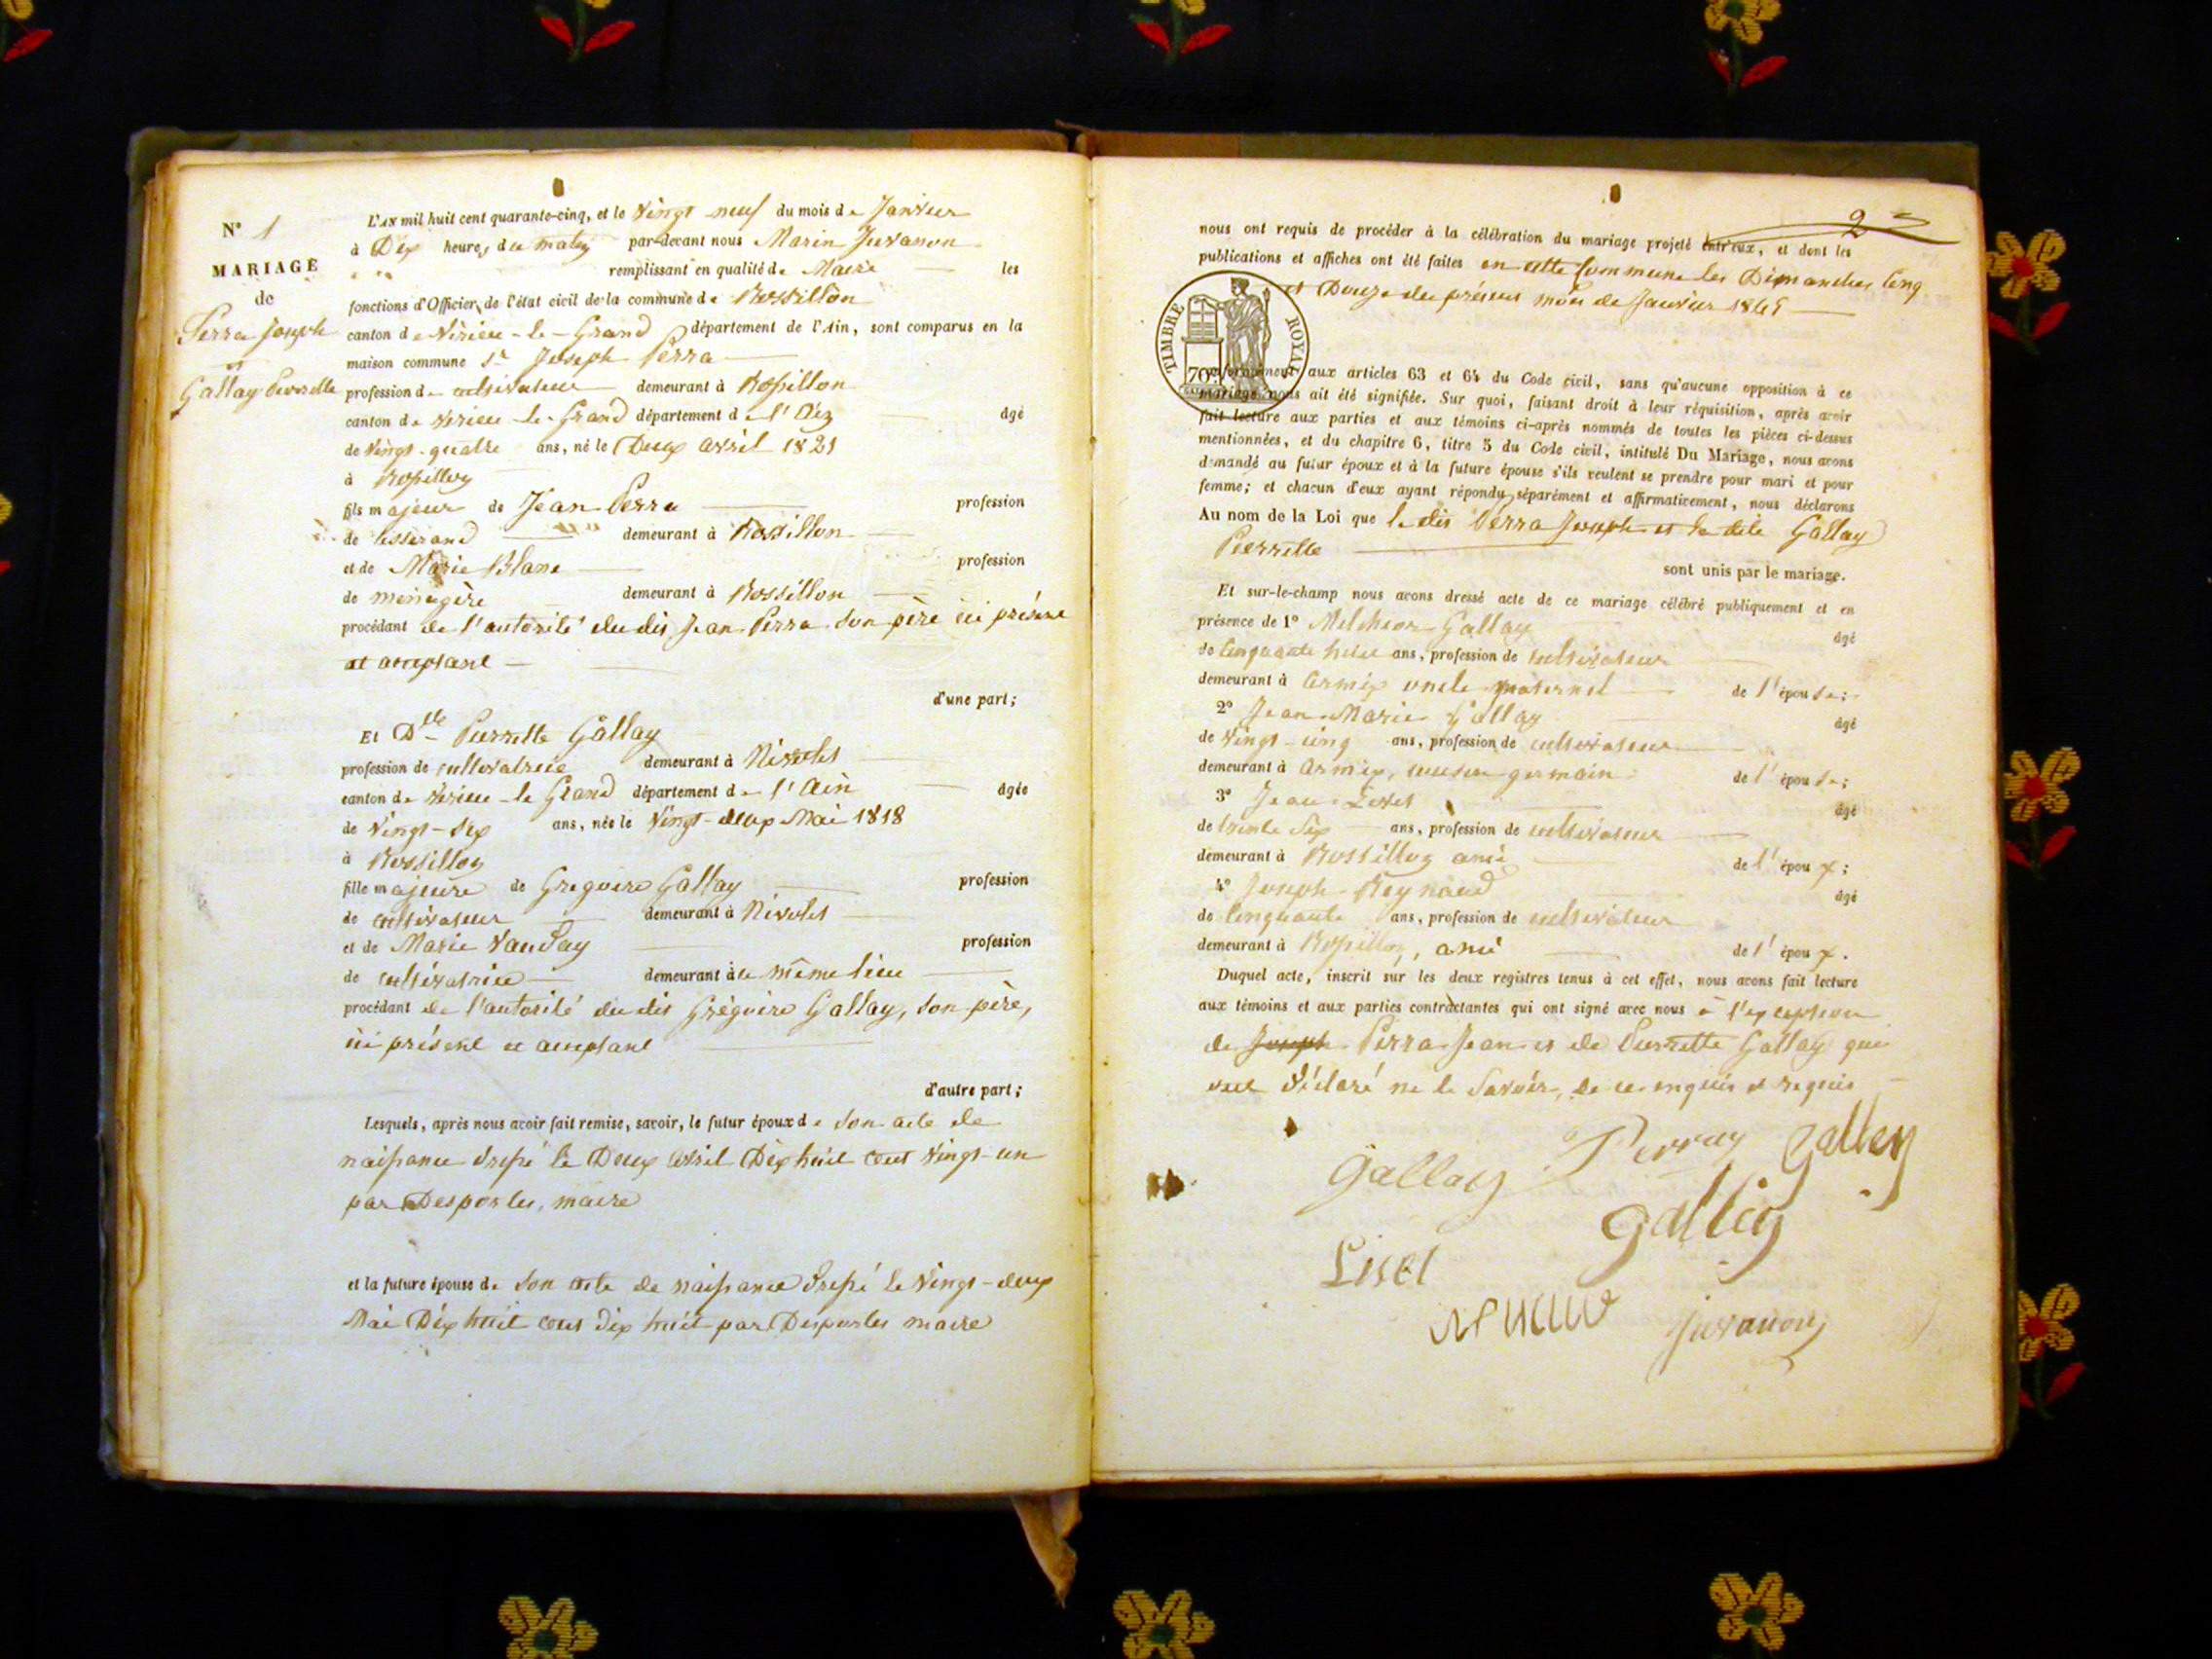 N° 1
MARIAGE
de
Perra Joseph
et
Gallay Pierrette
L'AN mil huit cent quarante-cinq, et le Vingt neuf du mois de Janvier
à Dix heures du matin par-devant nous Marin Juvanon
remplissant en qualité de Maire les
fonctions d'Officier de l'état civil de la commune de Rossillon
canton de Virieu-le-Grand département de l'Ain, sont comparus en la
maison commune Sr Joseph Perra
profession de cultivateur demeurant à Rossillon
canton de Virieu-le-Grand département de l'Ain âgé
de Vingt-quatre ans, né le Deux avril 1821
à Rossillon
fils majeur de Jean Perra profession
de tisserand demeurant à Rossillon
et de Marie Blanc profession
de ménagère demeurant à Rossillon
procédant de l'autorité du dit Jean Perra son père ici présent
et acceptant
d'une part;
Et Dlle Pierrette Gallay
profession de cultivatrice demeurant à Nivolet
canton de Virieu-le-Grand département de l'Ain âgée
de Vingt-six ans, née le Vingt-deux Mai 1818
à Rossillon
fille majeure de Gregoire Gallay profession
de cultivateur demeurant à Nivolet
et de Marie Vanday profession
de cultivatrice demeurant au même lieu
procédant de l'autorité du dit Grégoire Gallay, son père,
ici présent et acceptant
d'autre part;
Lesquels, après nous avoir fait remise, savoir, le futur époux de son acte de
naissance dressé le Deux avril Dix huit cent vingt-un
par Desportes, maire
et la future épouse de son acte de naissance dressé le Vingt-deux
Mai Dix huit cent dix huit par Desportes maire
2
nous ont requis de procéder à la célébration du mariage projeté entr'eux, et dont les
publications et affiches ont été faites en cette Commune les Dimanches Cinq
et Douze du présent mois de Janvier 1845
TIMBRE ROYAL
70c
conformément aux articles 63 et 64 du Code civil, sans qu'aucune opposition à ce
mariage nous ait été signifiée. Sur quoi, faisant droit à leur réquisition, après avoir
fait lecture aux parties et aux témoins ci-après nommés de toutes les pièces ci-dessus
mentionnées, et du chapitre 6, titre 5 du Code civil, intitulé Du Mariage, nous avons
demandé au futur époux et à la future épouse s'ils veulent se prendre pour mari et pour
femme; et chacun d'eux ayant répondu séparément et affirmativement, nous déclarons
Au nom de la Loi que le dit Perra Joseph et la dite Gallay
Pierrette
sont unis par le mariage.
Et sur-le-champ nous avons dressé acte de ce mariage célébré publiquement et en
présence de 1° Melchior Gallay âgé
de Cinquante huit ans, profession de cultivateur
demeurant à Armix oncle paternel de l'épouse;
2° Jean-Marie Gallay âgé
de Vingt-cinq ans, profession de cultivateur
demeurant à Armix, cousin germain de l'épouse;
3° Jean Livet âgé
de trente six ans, profession de cultivateur
demeurant à Rossillon ami de l'époux;
4° Joseph Reynaud âgé
de Cinquante ans, profession de cultivateur
demeurant à Rossillon, ami de l'époux.
Duquel acte, inscrit sur les deux registres tenus à cet effet, nous avons fait lecture
aux témoins et aux parties contractantes qui ont signé avec nous à l'exception
de Joseph Perra Jean et de Pierrette Gallay qui
ont déclaré ne le savoir, de ce enquis et requis
Gallay Perray Gallay
Gallay
Livet
Juvanon